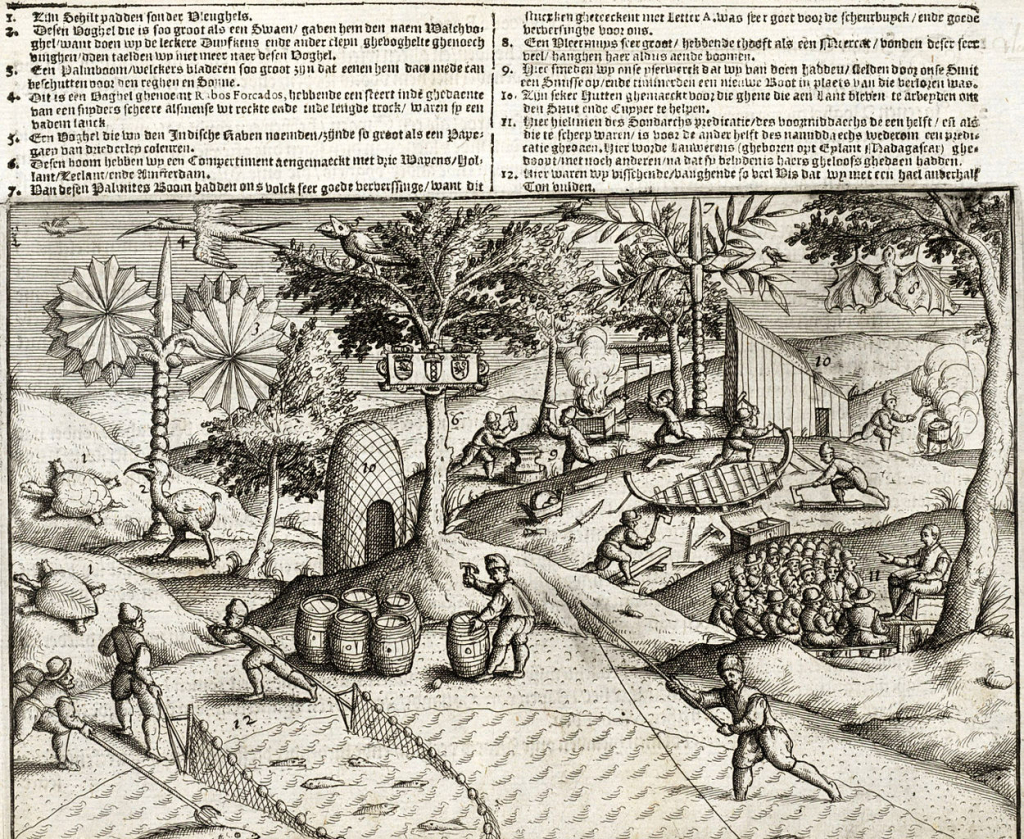 1. Zijn Schilt padden sonder Vleughels.
2. Desen Voghel die is soo groot als een Swaen/ gaven hem den naem Walchvo-
ghel/want doen wy de leckere Duyfkens ende ander cleyn ghevoghelte ghenoech
vinghen/doen taelden wy niet meer naer desen Voghel.
3. Een Palmboom/welckers bladeren soo groot zijn dat eenen hem daer mede can
beschutten voor den reghen en Sonne.
4. Dit is een Voghel ghenoemt Rabos Forcados, hebbende een steert inde ghedaente
van een snyders scheere alsmense wt reckte ende inde lengde trock/ waren sy een
vadem lanck.
5. Een Voghel die wy den Indische Raven noemden/zijnde so groot als een Pape-
gaey van drederley coleuren.
6. Desen boom hebben wy een Compertiment aengemaeckt met drie Wapens/Hol-
lant/Zeelant/ende Amsterdam.
7. Van desen Palmites Boom hadden ons volck seer goede verversinge/ want die
stucxken gheteeckent met Letter A. was seer goet voor de scheurbuyck/ ende goede
verversinghe voor ons.
8. Een Vleermuys seer groot/ hebbende thooft als een Meercat/ vonden deser seer
veel/ hanghen haer aldus aende boomen.
9. Hier smeden wy onse yserwerck dat wy van doen hadden/ stelden door onse Smit
een Smisse op/ende timmerden een nieuwe Boot in plaets van die verloren was.
10. Zijn seker Hutten ghemaeckt voor die ghene die aen Lant bleven te arbeyden om
den Smit ende Cuyper te helpen.
11. Hier hielmen des Sondaechs predicatie/des voormiddaechs de een helft/ en als
die te scheep waren/ is voor de ander helft des namiddaechs wederom een predi-
catie ghedaen. Hier worde Lauwerens (gheboren opt Eylant Madagascar) ghe-
doopt/met noch anderen/na dat sy belydenis haers gheloofs ghedaen hadden.
12. Hier waren wy visschende/vanghende so veel Vis dat wy met een hael anderhalf
Ton vulden.
4
7
8
3
10
6
1
2
10
9
1
11
12